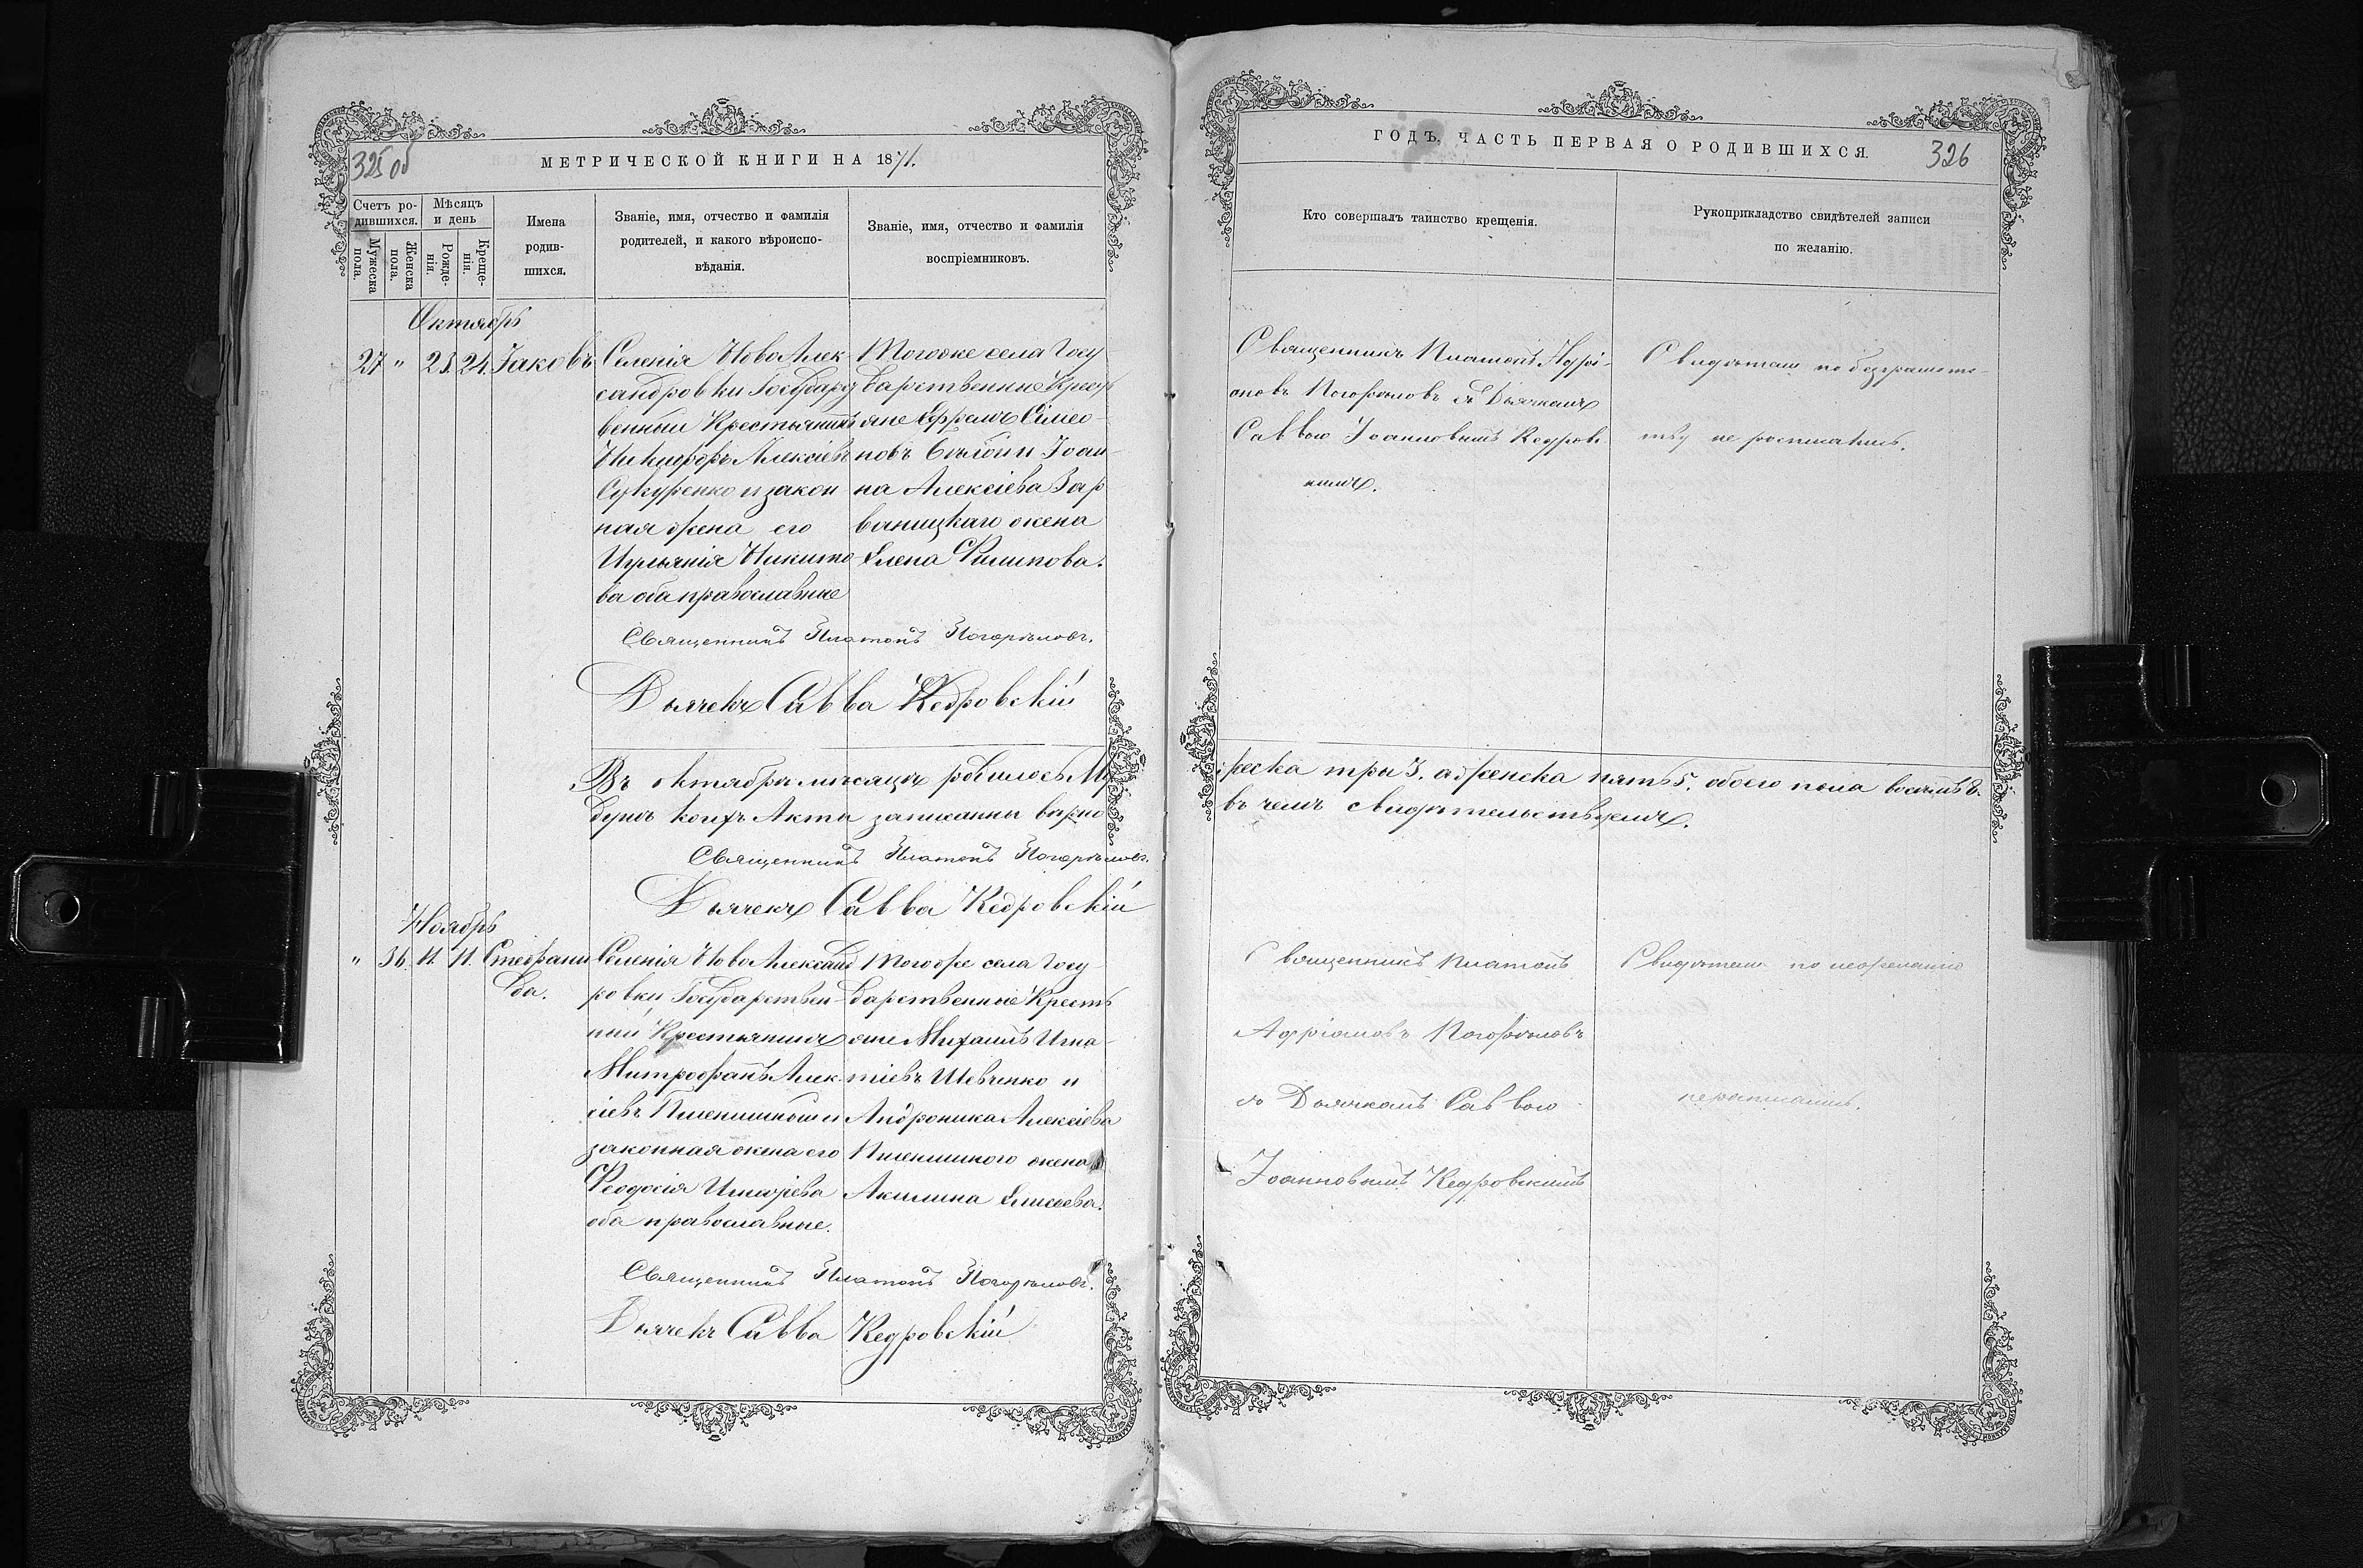 325 об
МЕТРИЧЕСКОЙ КНИГИ НА 1871.
Счетъ родившихся.
Мужеска пола.
Женска пола.
Мѣсяцъ и день
Рожденія.
Крещенія.
Имена
родив-
шихся.
Званіе, имя, отчество и фамилія
родителей, и какого вѣроиспо-
вѣданія.
Званіе, имя, отчество и фамилія
воспріемниковъ.
Октябрь
27 " 23. 24. Іаковъ
Селенія НовоАлек
сандровки Государст
венный Крестьянинъ
Никифоръ Алексіевъ
и закон
ная жена его
Никито
ва оба православные
Тогоже села Госу
дарственные Кресть
яне Ефремъ Сімео-
новъ и Іоан
на Алексіева Зар
ваницкаго жена
Елена Филипова.
Священникъ Платонъ Погорѣловъ.
Дьячекъ Савва Кедровскій
Въ октябрѣ мѣсяцѣ родилось Му
душъ коихъ Акты записанны вѣрно
Священникъ Платонъ Погорѣловъ.
Дьячекъ Савва Кедровскій
Ноябрь
" 36. 11. 11. Стефани
да.
Селенія НовоАлександ
ровки Государствен-
ный Крестьянинъ
Митрофанъ Алек
сіевъ и
законная жена его
Феодосія
оба православные.
Тогоже села Госу
дарственные Кресть
яне Михаилъ Игна
тіевъ Шевченко и
Андроника Алексіева
жена
Акилина Елисеева.
Священникъ Платонъ Погорѣловъ.
Дьячекъ Савва Кедровскій
ГОДЪ. ЧАСТЬ ПЕРВАЯ О РОДИВШИХСЯ.
326
Кто совершалъ таинство крещенія.
Рукоприкладство свидѣтелей записи
по желанію.
Священникъ Платонъ Адрі-
ановъ Погорѣловъ съ Дьячкомъ
Саввою Іоанновымъ Кедров
скимъ.
Свидѣтели по безграмотс-
тву не росписались.
жеска три 3. а женска пять 5. обоего пола восемь 8.
въ чемъ свидѣтельствуемъ.
Священникъ Платонъ
Адріановъ Погорѣловъ
съ Дьячкомъ Саввою
Іоанновымъ Кедровскимъ
Свидѣтели по нежеланію